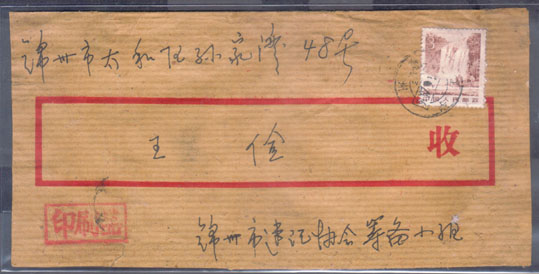 锦州市太和区孙家湾48号
王
收
印刷品
锦州市速记协会筹备小组